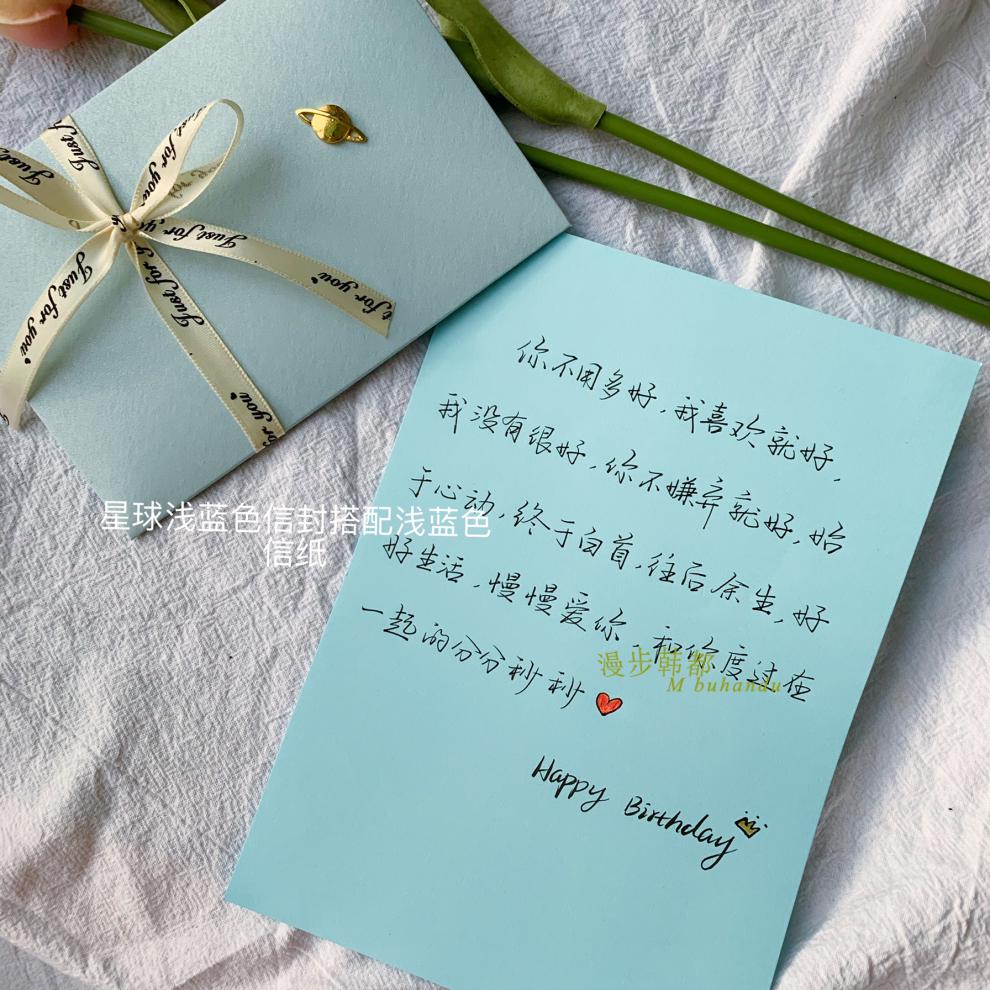 Just for you
Just for you
Just for you
Just for you
Just for you
for you
you
星球浅蓝色信封搭配浅蓝色
信纸
你不用多好,我喜欢就好,
我没有很好,你不嫌弃就好,始
于心动,终于白首,往后余生,好
好生活,慢慢爱你,和你度过在
一起的分分秒秒
漫步韩都
M buhandu
Happy Birthday